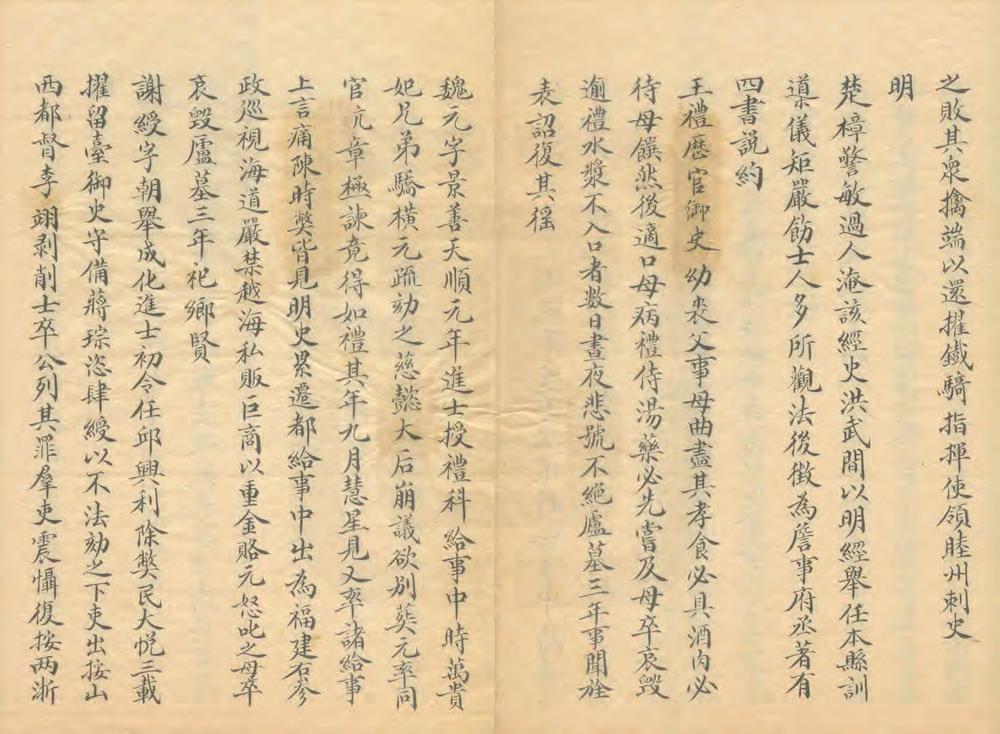 之敗其衆擒端以還擢鐵騎指揮使領睦州刺史
明
楚樟警敏過人淹該經史洪武間以明經舉任本縣訓
導儀矩嚴飭士人多所觀法後徴為詹事府丞著有
四書説約
王禮歷官御史幼喪父事母曲盡其孝食必具酒肉必
待母饌然後適口母病禮侍湯藥必先嘗及母卒哀毁
逾禮水漿不入口者數日晝夜悲號不絕廬墓三年事聞旌
表詔復其徭
魏元字景善天順元年進士授禮科給事中時萬貴
妃兄弟驕橫元疏劾之慈懿大后崩議欲别葬元率同
官抗章極諫竟得如禮其年九月慧星見又率諸給事
上言痛陳時獘皆見明史累遷都給事中出為福建右參
政巡視海道嚴禁越海私販巨商以重金賂元怒叱之母卒
哀毁廬墓三年祀鄉賢
謝綬字朝舉成化進士初令任邱興利除獘民大悦三載
擢留臺御史守備蔣琮恣肆綬以不法劾之下吏出按山
西都督李翊剥削士卒公列其罪羣吏震慴復按两浙